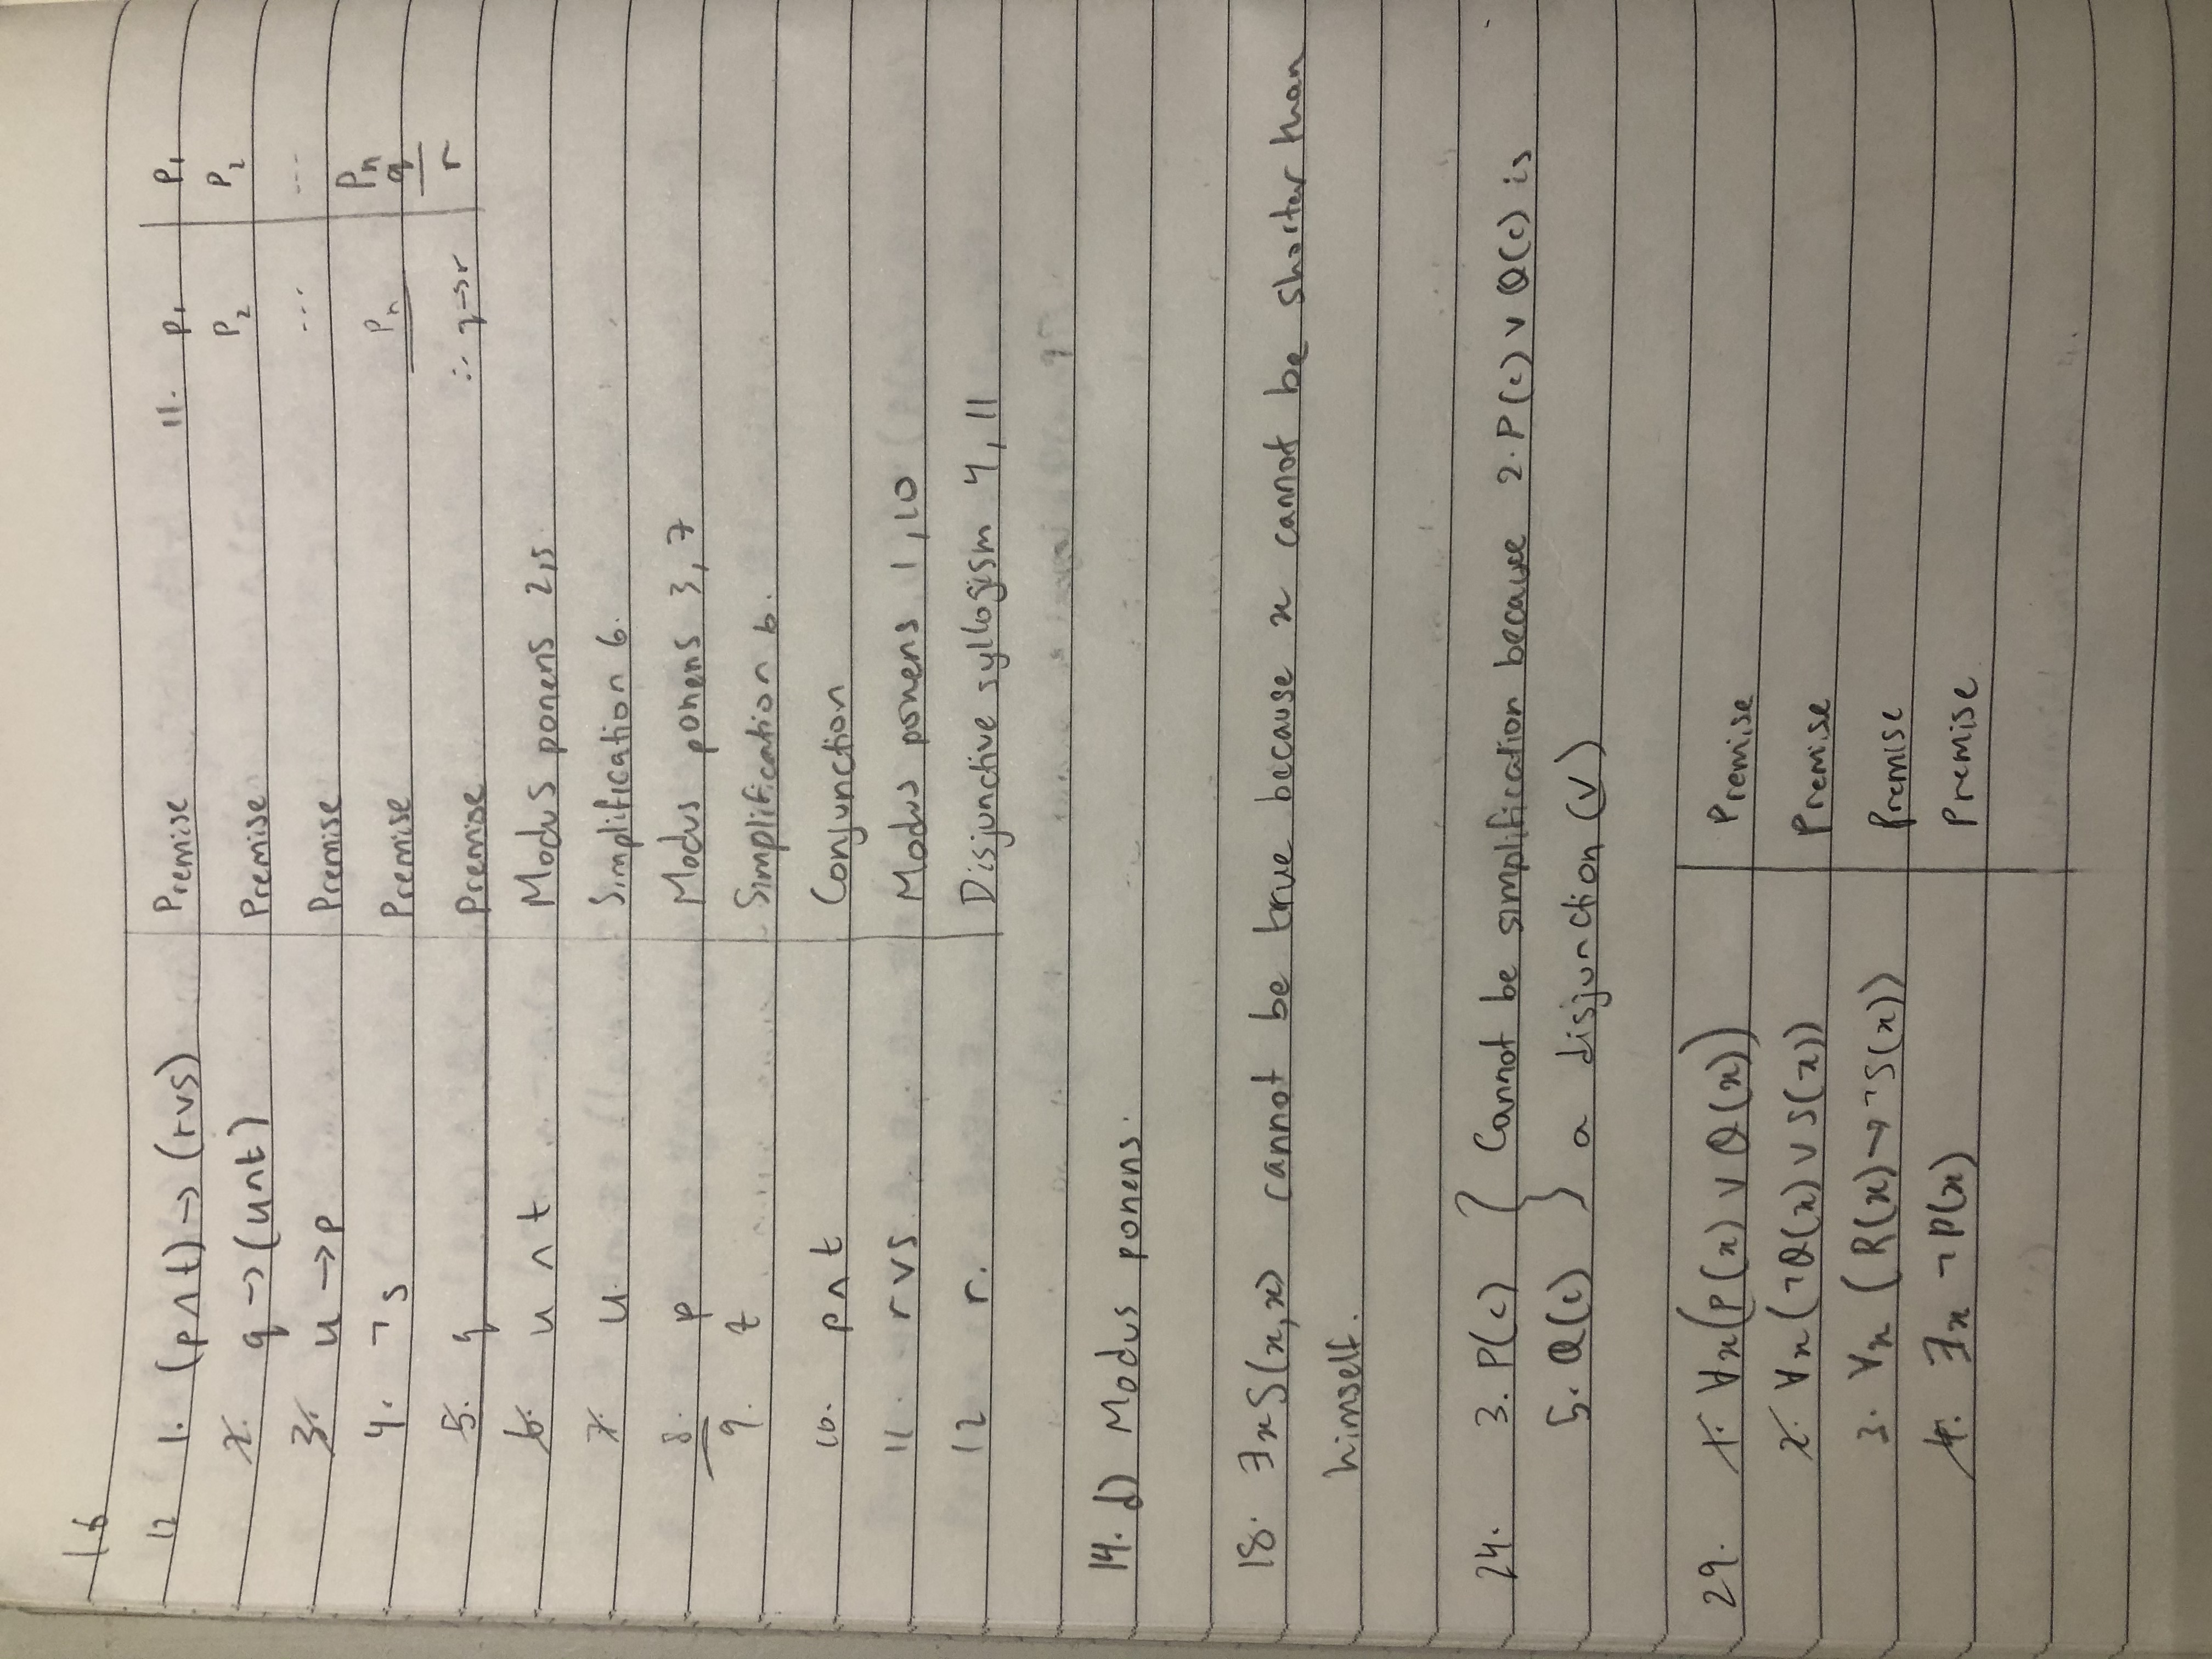 1.6
12 1. (p ∧ t) → (r ∨ s) Premise
2. q → (u ∧ t) Premise
3. u → p Premise
4. ¬ s Premise
5. q Premise
6. u ∧ t Modus ponens 2,5
7. u. Simplification 6.
8. p Modus ponens 3, 7
9. t Simplification 6.
10. p ∧ t Conjunction
11. r ∨ s Modus ponens 1, 10
12 r. Disjunctive syllogism 4, 11
11. p₁ p₁
p₂ p₂
... ---
pₙ pₙ
q
∴ q → r r
14. d) Modus ponens.
18. ∃x S(x,x) cannot be true because x cannot be shorter than
himself.
24. 3. P(c) } Cannot be simplification because 2. P(c) ∨ Q(c) is
5. Q(c) a disjunction (∨)
29. 1. ∀x(P(x) ∨ Q(x)) Premise
2. ∀x(¬Q(x) ∨ S(x)) Premise
3. ∀x (R(x) → ¬S(x)) Premise
4. ∃x ¬P(x) Premise